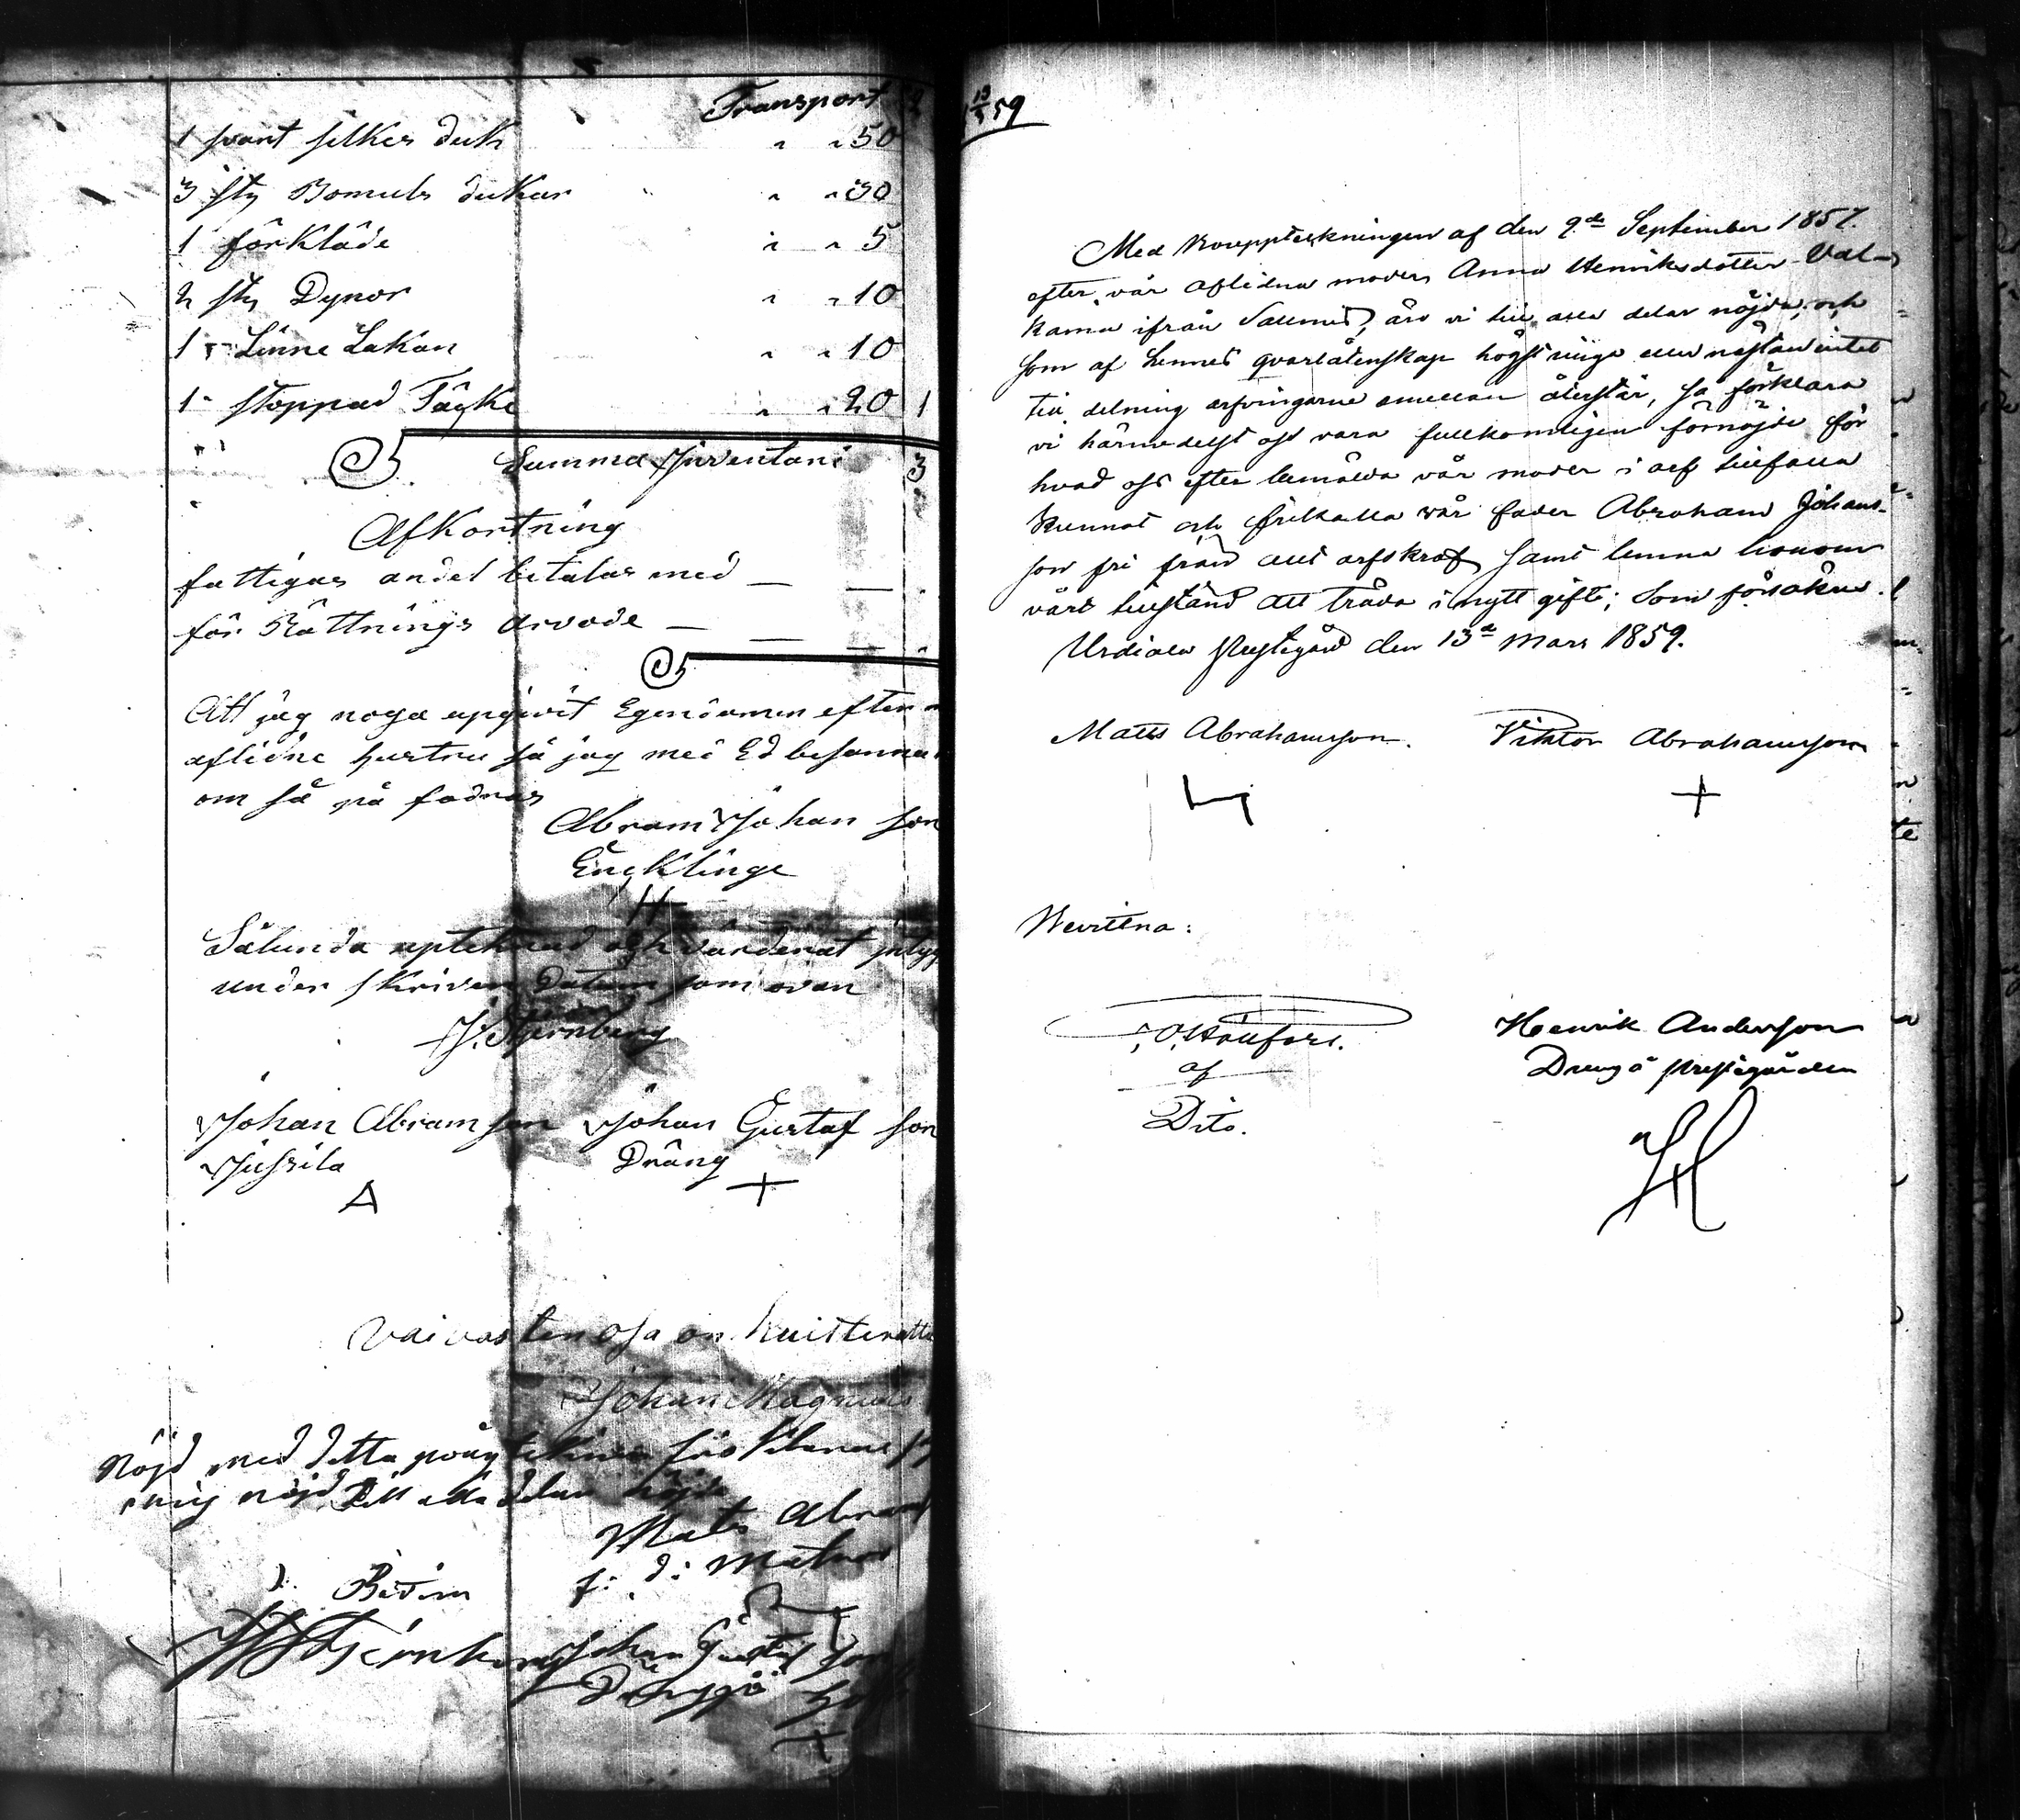 Transport
1 svart silkes duk " " 50
3 sty Bomuls dukar " " 30
1 förkläde " " 5
2 sty Dynor " " 10
1 Linne Lakan " " 10
1 stoppad Täcke " " 20 1
Summa Inventari 3
Afkortning
fattigas andel betalas med —
för Rättnings arvode —
Att jag noga upgivit Egendomen efter
aflidne hustru så jag med Ed besanna
om så på fodras
Abram Johan son
Engklinge
Sålunda uptecknad och värderat intyg
under skriven Datum som ovan
H. Stjernberg
Johan Abram son Johan Gustaf son
Jussila Dräng
Vaivasten osa on kuisteerattu
Johan Magnus
Nöjd med detta
mig nöjd Till alla delar nöjd
Mats Abra
Bevitn
H Stjernberg Johan Gustaf son
13/3 59
Med Bouppteckningen af den 9de September 1857.
efter vår aflidna moder Anna Henriksdotter Val-
kama ifrån Salmis, äro vi till alla delar nöjda, och
som af hennes qvarlåtenskap högst ringa eller nästan intet
till delning arfvingarne emellan återstår, så förklara
vi härmedelst oss vara fullkomligen förnöjde för
hvad oss efter bemälda vår moder i arf tillfalla
kunnat och frikalla vår fader Abraham Johans-
son fri från allt arfskraf, samt lemna honom
vårt tillstånd att träda i nytt gifte; som försäkras.
Urdiala Prestgård den 13de Mars 1859.
Matts Abrahamsson. Viktor Abrahamsson
+
Bevittna:
Henrik Andersson
Dreng å Prestegården
af
Dito.